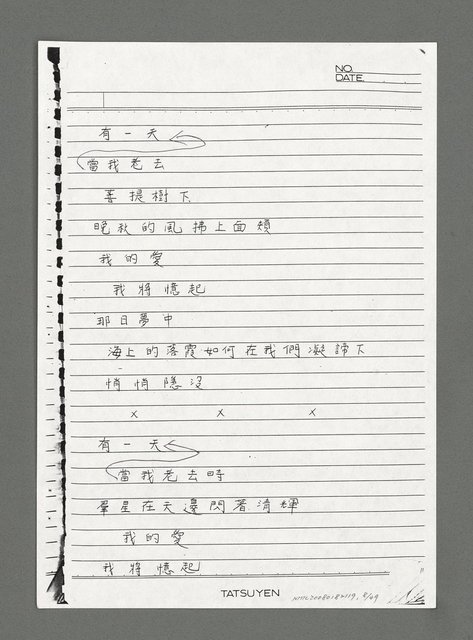 NO.
DATE.
有一天
當我老去
菩提樹下
晚秋的風拂上面頰
我的愛
我將憶起
那日夢中
海上的落霞如何在我們凝諦下
悄悄隱沒
x x x
有一天
當我老去時
羣星在天邊閃著清輝
我的愛
我將憶起
TATSUYEN